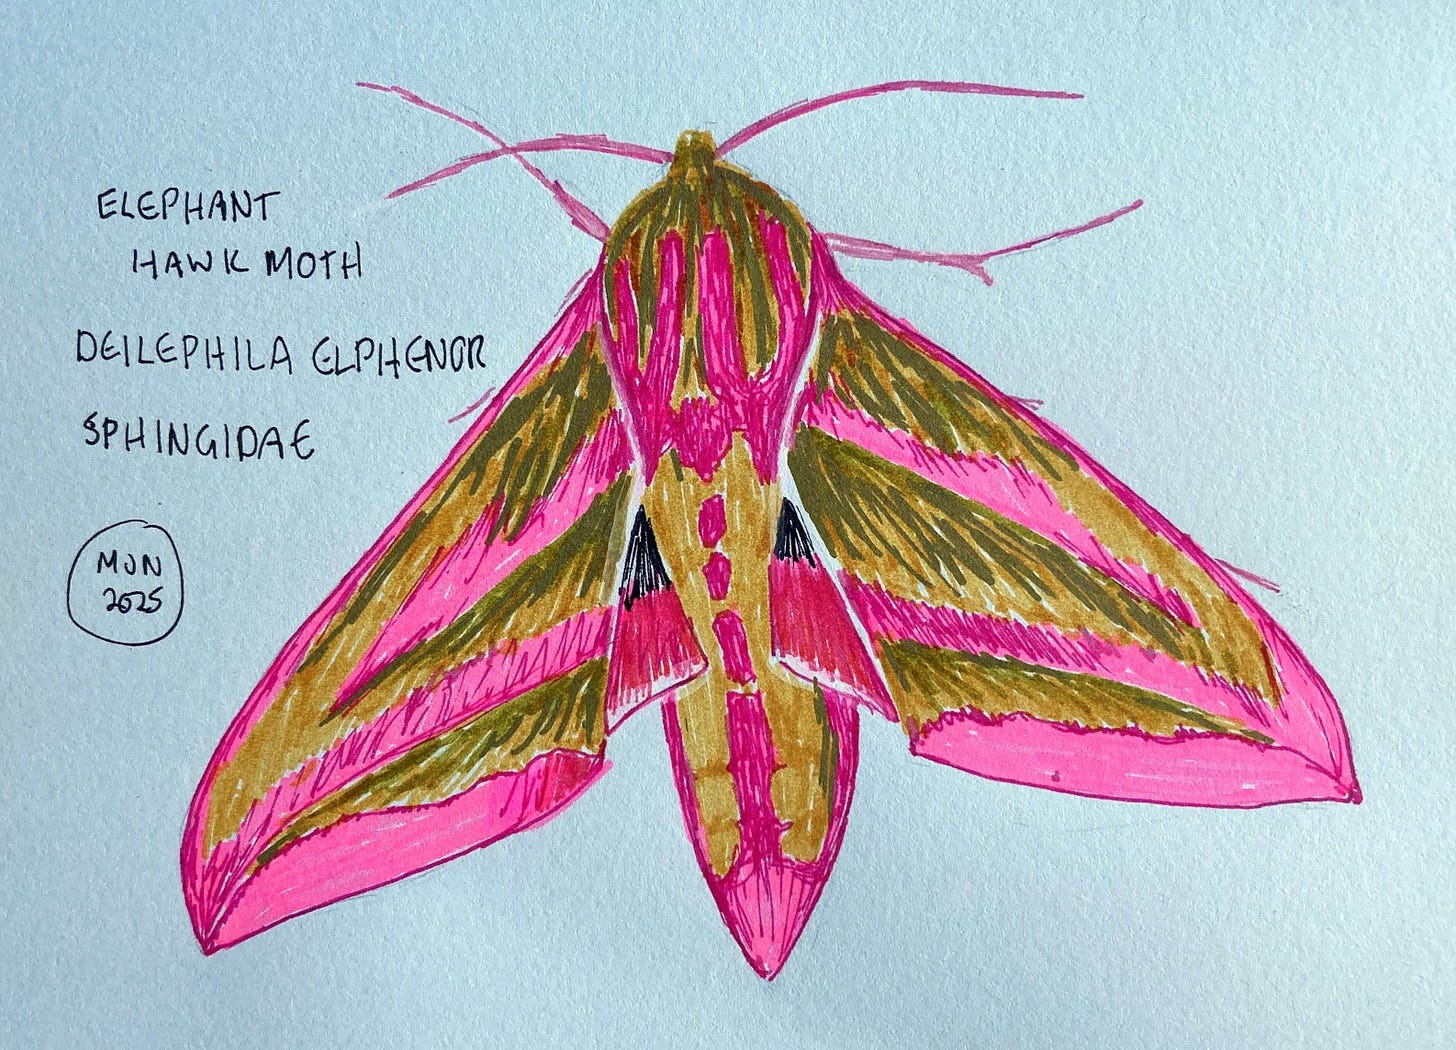 ELEPHANT
HAWK MOTH
DEILEPHILA ELPHENOR
SPHINGIDAE
MJN
2025